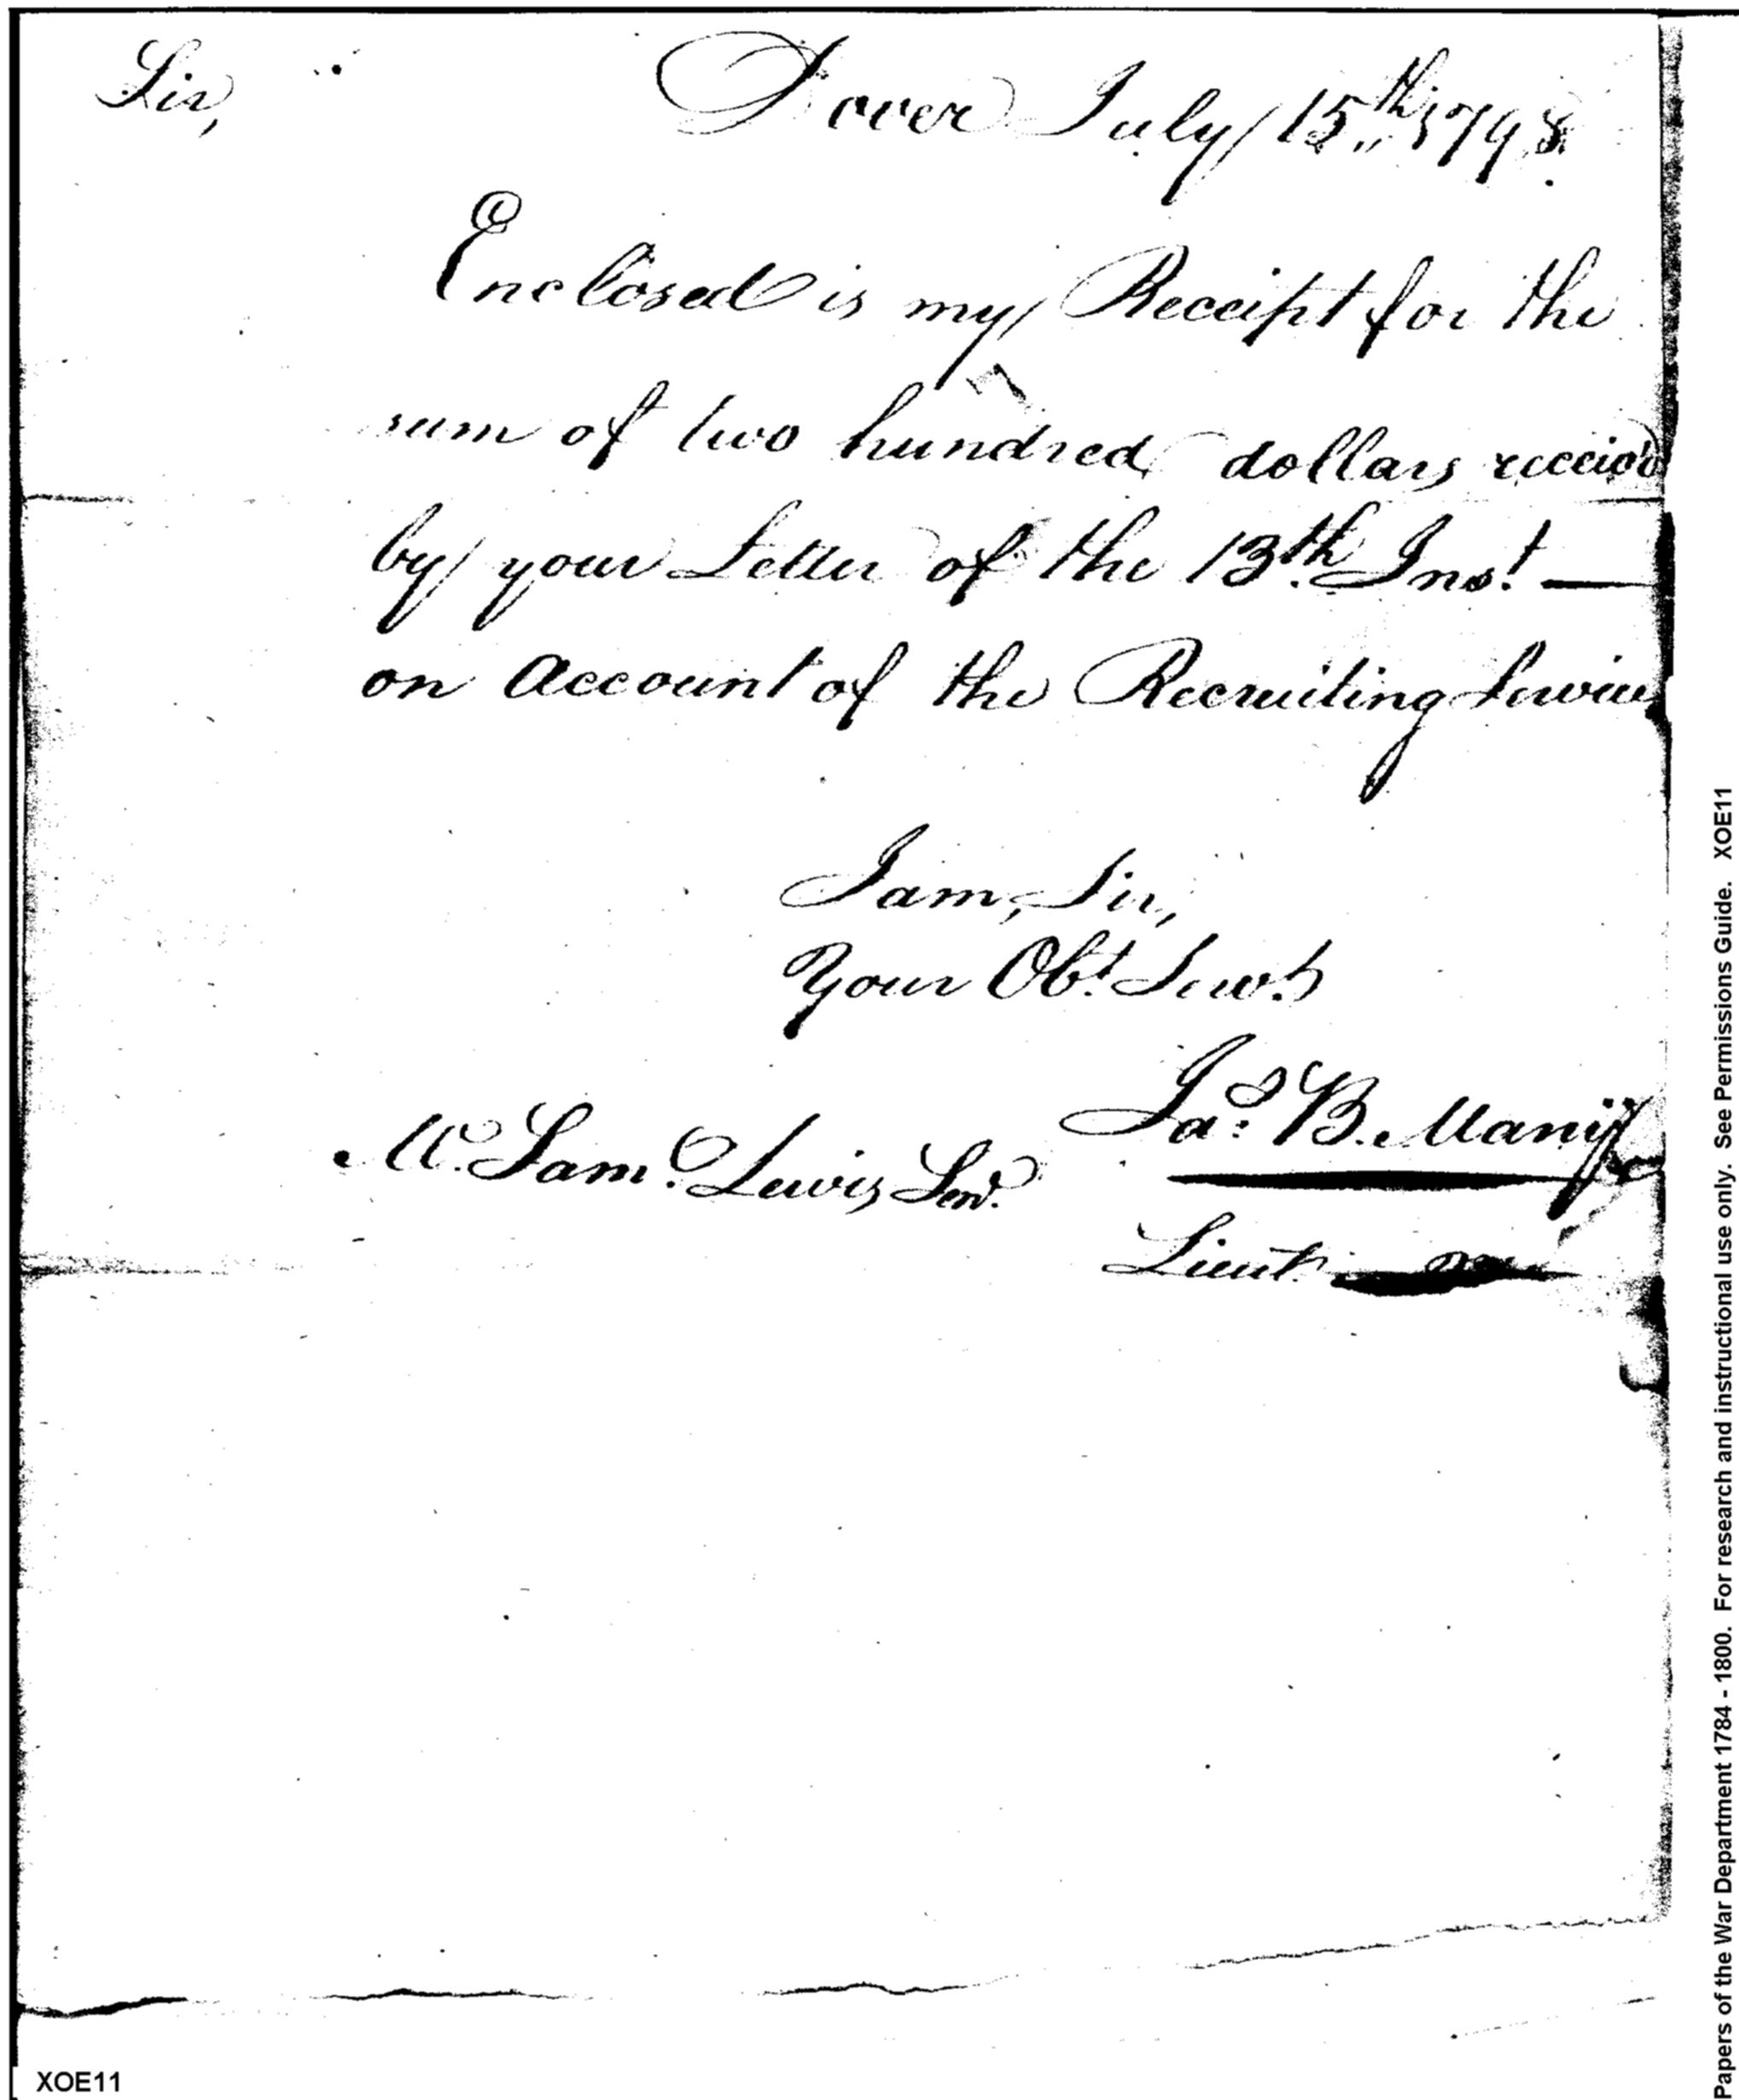 Sir,
Dover July 15th 1798.
Enclosed is my Receipt for the
sum of two hundred dollars receiv'd
by your Letter of the 13th Inst —
on Account of the Recruiting Service
I am, Sir,
Your Obt. Servt
Jas: B. Many
Mr. Sam. Lewis Senr.
Lieut.
Papers of the War Department 1784 - 1800. For research and instructional use only. See Permissions Guide. XOE11
XOE11